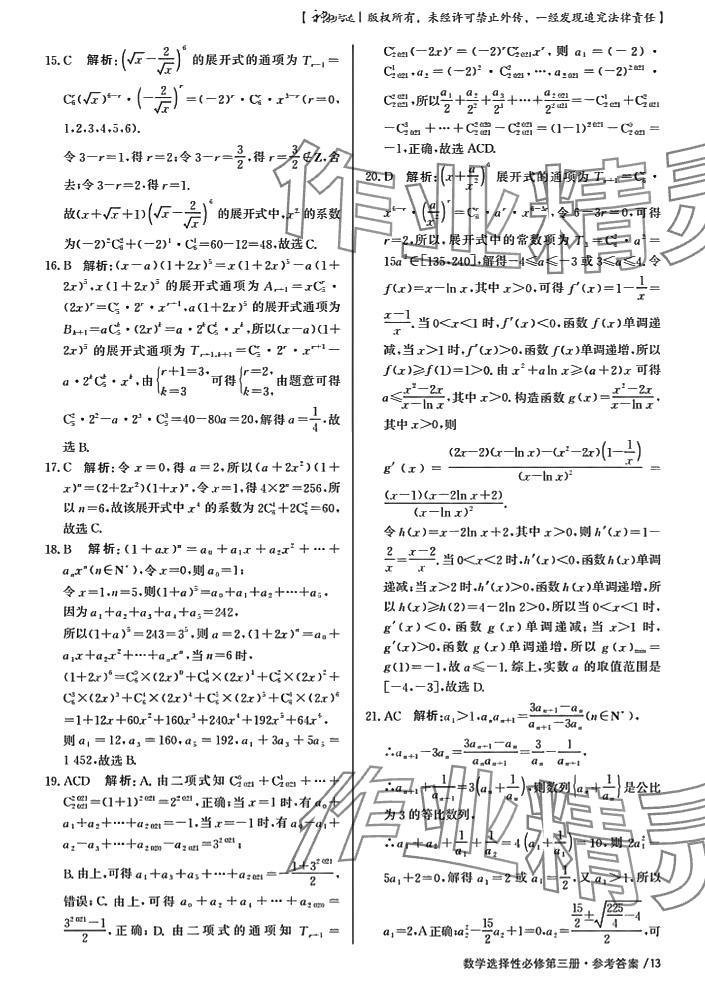 版权所有，未经许可禁止外传，一经发现追究法律责任】
15. C 解析：(√x－2/√x)^6 的展开式的通项为 T_{r+1}＝
C_6^r(√x)^{6－r}·(－2/√x)^r＝(－2)^r·C_6^r·x^{3－r}(r＝0,
1,2,3,4,5,6).
令 3－r＝1,得 r＝2;令 3－r＝3/2,得 r＝3/2∉Z,舍
去;令 3－r＝2,得 r＝1.
故(x＋√x＋1)(√x－2/√x)^6 的展开式中,x^2 的系数
为(－2)^2C_6^2＋(－2)^1·C_6^1＝60－12＝48,故选 C.
16. B 解析：(x－a)(1＋2x)^5＝x(1＋2x)^5－a(1＋
2x)^5,x(1＋2x)^5 的展开式通项为 A_{r+1}＝xC_5^r·
(2x)^r＝C_5^r·2^r·x^{r+1},a(1＋2x)^5 的展开式通项为
B_{k+1}＝aC_5^k·(2x)^k＝a·2^kC_5^k·x^k,所以(x－a)(1＋
2x)^5 的展开式通项为 T_{r+1,k+1}＝C_5^r·2^r·x^{r+1}－
a·2^kC_5^k·x^k,由{r＋1＝3, k＝3 可得{r＝2, k＝3 由题意可得
C_5^2·2^2－a·2^3·C_5^3＝40－80a＝20,解得 a＝1/4.故
选 B.
17. C 解析：令 x＝0,得 a＝2,所以(a＋2x^2)(1＋
x)^n＝(2＋2x^2)(1＋x)^n,令 x＝1,得 4×2^n＝256.所
以 n＝6,故该展开式中 x^4 的系数为 2C_6^4＋2C_6^2＝60,
故选 C.
18. B 解析：(1＋ax)^n＝a_0＋a_1x＋a_2x^2＋…＋
a_nx^n(n∈N^*),令 x＝0,则 a_0＝1;
令 x＝1,n＝5,则(1＋a)^5＝a_0＋a_1＋a_2＋…＋a_5,
因为 a_1＋a_2＋a_3＋a_4＋a_5＝242,
所以(1＋a)^5＝243＝3^5,则 a＝2,(1＋2x)^n＝a_0＋
a_1x＋a_2x^2＋…＋a_nx^n,当 n＝6时,
(1＋2x)^6＝C_6^0×(2x)^0＋C_6^1×(2x)^1＋C_6^2×(2x)^2＋
C_6^3×(2x)^3＋C_6^4×(2x)^4＋C_6^5×(2x)^5＋C_6^6×(2x)^6
＝1＋12x＋60x^2＋160x^3＋240x^4＋192x^5＋64x^6.
则 a_1＝12,a_3＝160,a_5＝192,a_1＋3a_3＋5a_5＝
1 452,故选 B.
19. ACD 解析：A.由二项式知 C_{2 021}^0＋C_{2 021}^1＋…＋
C_{2 021}^{2 021}＝(1＋1)^{2 021}＝2^{2 021},正确;当 x＝1时,有 a_0＋
a_1＋a_2＋…＋a_{2 021}＝－1,当 x＝－1时,有 a_0－a_1＋
a_2－a_3＋…＋a_{2 020}－a_{2 021}＝3^{2 021};
B.由上,可得 a_1＋a_3＋a_5＋…＋a_{2 021}＝－(1＋3^{2 021})/2,
错误;C.由上,可得 a_0＋a_2＋a_4＋…＋a_{2 020}＝
(3^{2 021}－1)/2,正确;D.由二项式的通项知 T_{r+1}＝
C_{2 021}^r(－2x)^r＝(－2)^rC_{2 021}^rx^r,则 a_1＝(－2)·
C_{2 021}^1,a_2＝(－2)^2·C_{2 021}^2,…,a_{2 021}＝(－2)^{2 021}·
C_{2 021}^{2 021},所以 a_1/2＋a_2/2^2＋a_3/2^3＋…＋a_{2 021}/2^{2 021}＝－C_{2 021}^1＋C_{2 021}^2
－C_{2 021}^3＋…＋C_{2 021}^{2 020}－C_{2 021}^{2 021}＝(1－1)^{2 021}－C_{2 021}^0＝
－1,正确,故选 ACD.
20. D 解析：(x＋a/x^2)^6 展开式的通项为 T_{r+1}＝C_6^r·
x^{6－r}·(a/x^2)^r＝C_6^r·a^r·x^{6－3r},令 6－3r＝0,可得
r＝2,所以,展开式中的常数项为 T_3＝C_6^2·a^2＝
15a^2∈[135,240],解得－4≤a≤－3 或 3≤a≤4.令
f(x)＝x－ln x,其中 x＞0,可得 f′(x)＝1－1/x＝
(x－1)/x.当 0＜x＜1时,f′(x)＜0,函数 f(x)单调递
减,当 x＞1时,f′(x)＞0,函数 f(x)单调递增,所以
f(x)≥f(1)＝1＞0.由 x^2＋aln x≥(a＋2)x 可得
a≤(x^2－2x)/(x－ln x),其中 x＞0.构造函数 g(x)＝(x^2－2x)/(x－ln x),
其中 x＞0,则
g′(x)＝((2x－2)(x－ln x)－(x^2－2x)(1－1/x))/(x－ln x)^2＝
(x－1)(x－2ln x＋2)/(x－ln x)^2.
令 h(x)＝x－2ln x＋2,其中 x＞0,则 h′(x)＝1－
2/x＝(x－2)/x.当 0＜x＜2时,h′(x)＜0,函数 h(x)单调
递减;当 x＞2时,h′(x)＞0,函数 h(x)单调递增,所
以 h(x)≥h(2)＝4－2ln 2＞0,所以当 0＜x＜1时,
g′(x)＜0,函数 g(x)单调递减;当 x＞1时,
g′(x)＞0,函数 g(x)单调递增,所以 g(x)_{min}＝
g(1)＝－1,故 a≤－1.综上,实数 a 的取值范围是
[－4,－3],故选 D.
21. AC 解析：a_1＞1,a_na_{n+1}＝(3a_{n+1}－a_n)/(a_{n+1}－3a_n)(n∈N^*),
∴a_{n+1}－3a_n＝(3a_{n+1}－a_n)/(a_na_{n+1})＝3/a_n－1/a_{n+1},
∴a_{n+1}＋1/a_{n+1}＝3(a_n＋1/a_n),则数列{a_n＋1/a_n}是公比
为 3 的等比数列,
∴a_1＋a_2＋1/a_1＋1/a_2＝4(a_1＋1/a_1)＝10,则 2a_1^2－
5a_1＋2＝0,解得 a_1＝2 或 a_1＝1/2,又 a_1＞1,所以
a_1＝2,A 正确;a_2^2－15/2a_2＋1＝0,a_2＝(15/2±√(225/4－4))/2,可
数学选择性必修第三册·参考答案/13
作业精灵
作业精灵